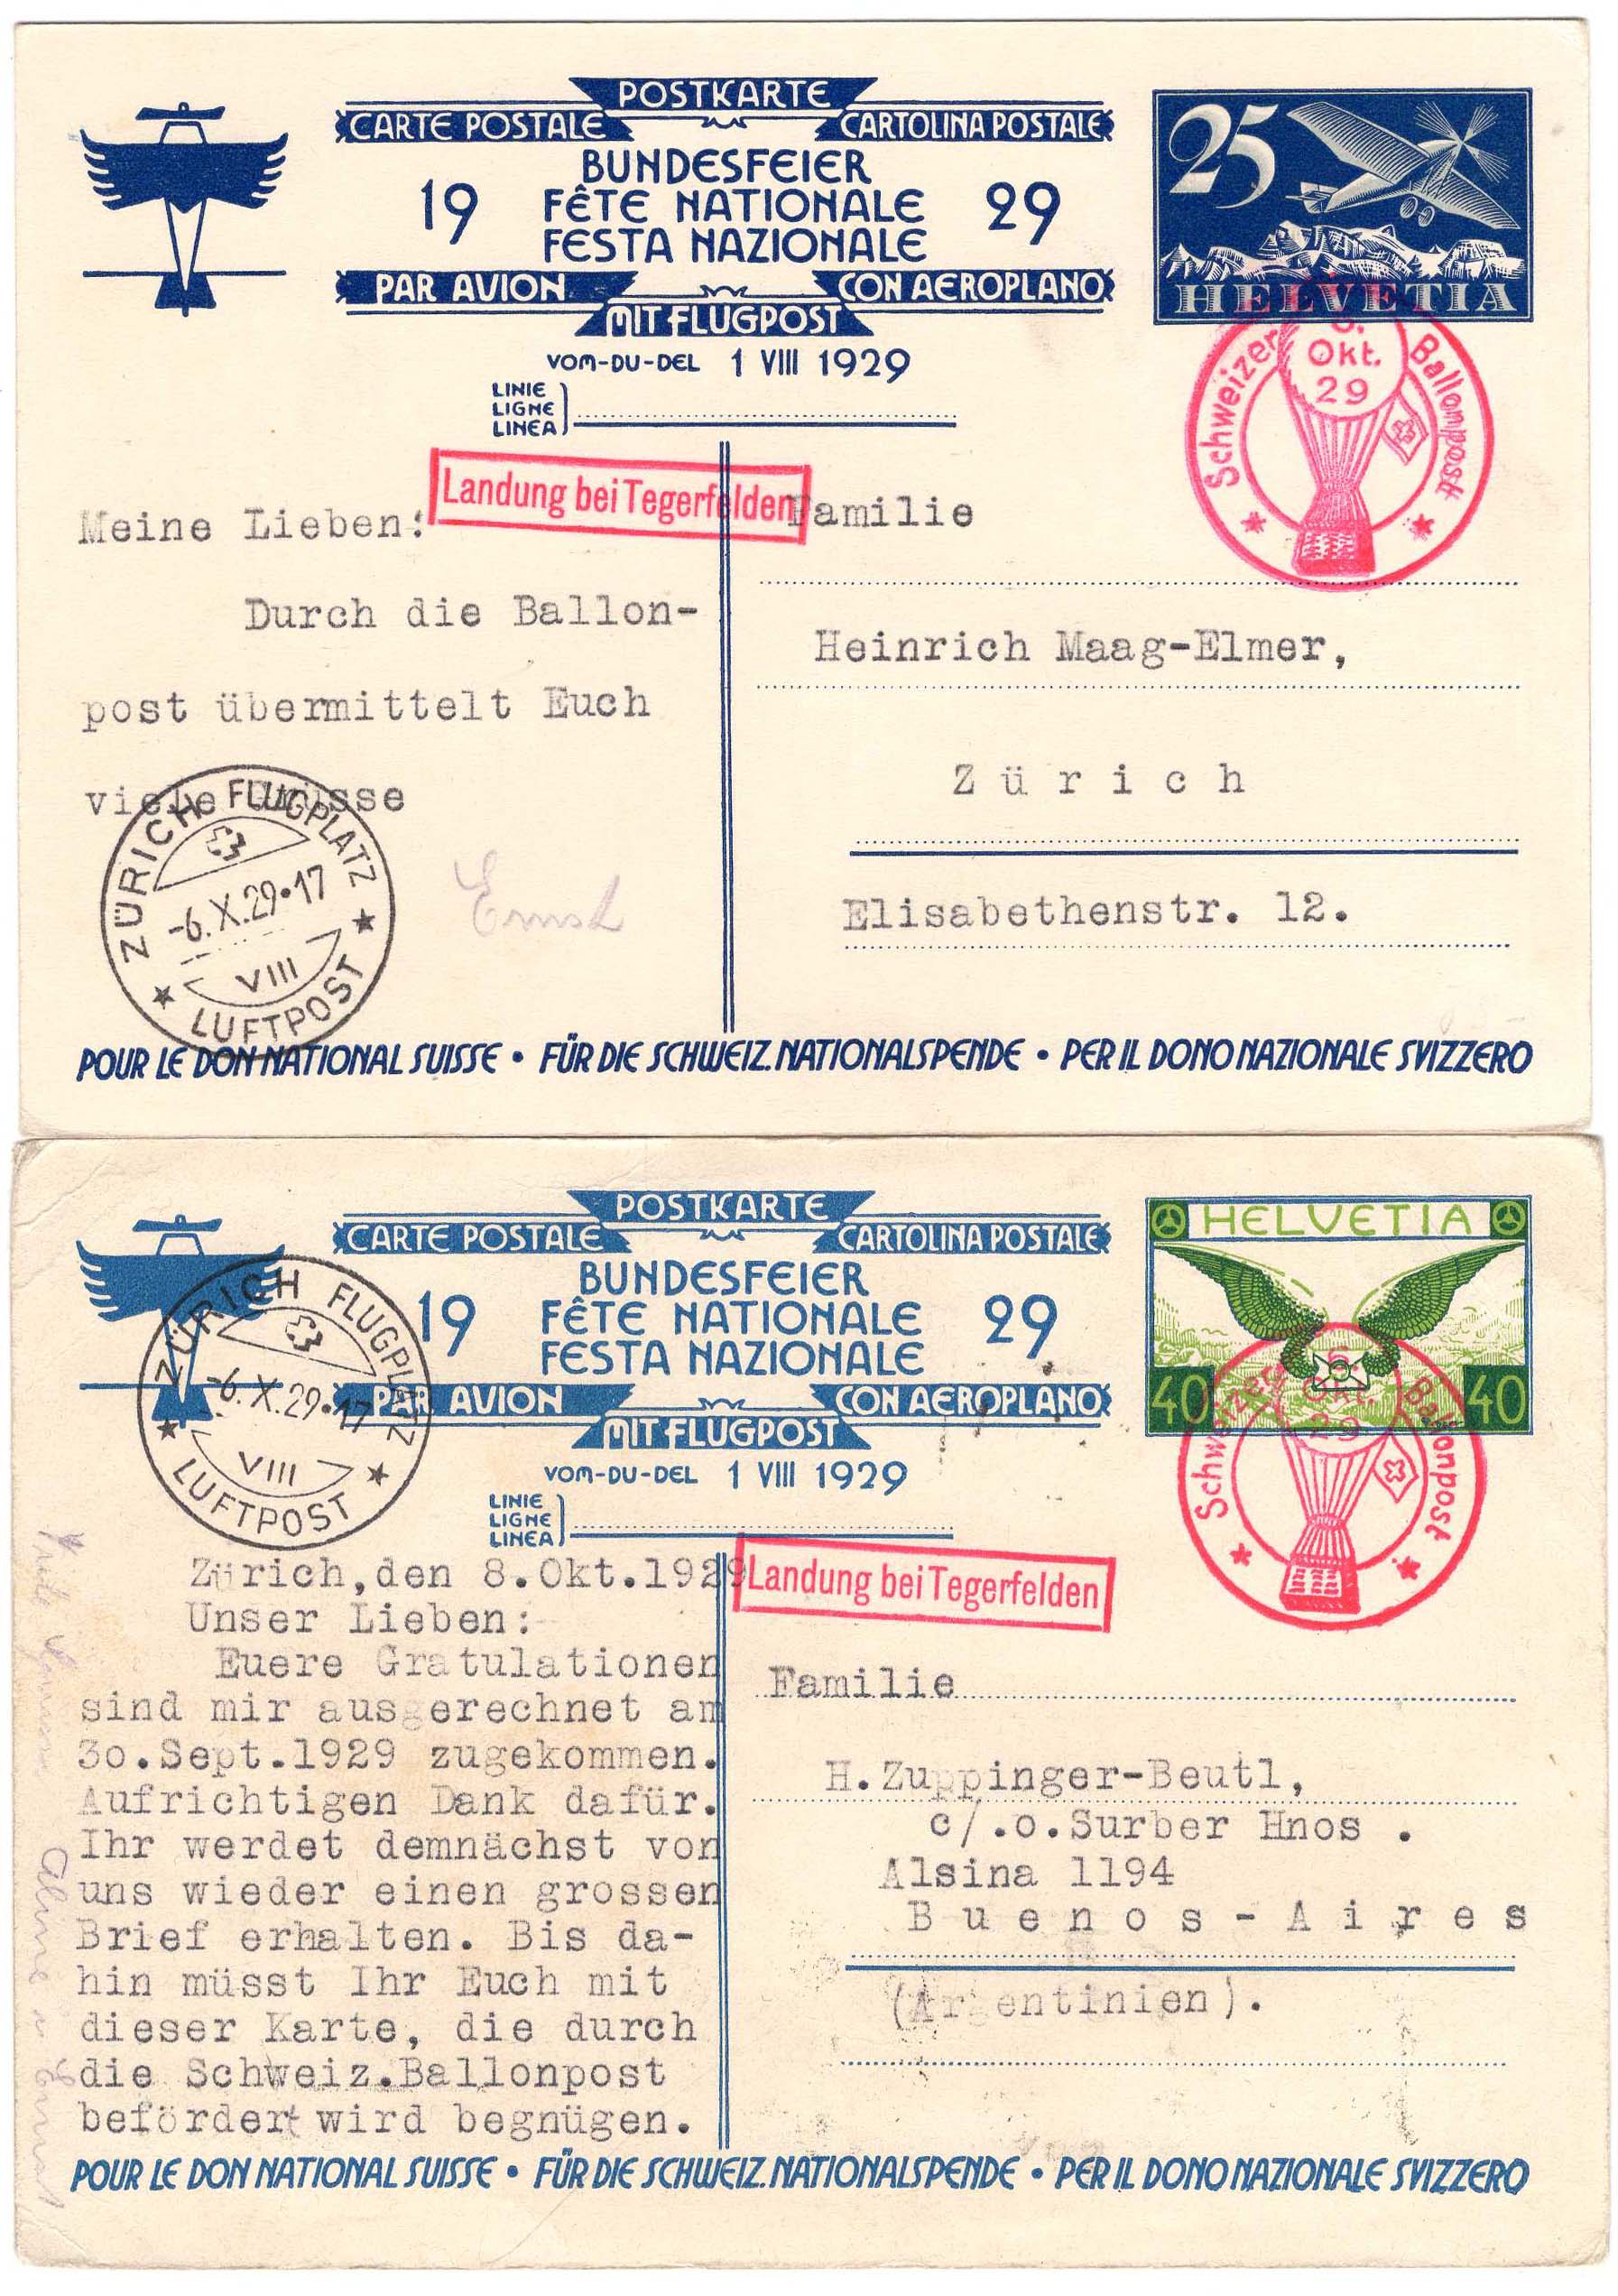 POSTKARTE
CARTE POSTALE CARTOLINA POSTALE
BUNDESFEIER
19 FÊTE NATIONALE 29
FESTA NAZIONALE
PAR AVION CON AEROPLANO
MIT FLUGPOST
VOM-DU-DEL 1 VIII 1929
LINIE
LIGNE
LINEA
25
HELVETIA
Schweizer Ballonpost
Okt.
29
Landung bei Tegerfelden
Meine Lieben:
Durch die Ballon-
post übermittelt Euch
viele Grüsse
Ernst
ZÜRICH FLUGPLATZ
-6.X.29•17
VIII
LUFTPOST
Familie
Heinrich Maag-Elmer,
Zürich
Elisabethenstr. 12.
POUR LE DON NATIONAL SUISSE • FÜR DIE SCHWEIZ. NATIONALSPENDE • PER IL DONO NAZIONALE SVIZZERO
POSTKARTE
CARTE POSTALE CARTOLINA POSTALE
BUNDESFEIER
19 FÊTE NATIONALE 29
FESTA NAZIONALE
PAR AVION CON AEROPLANO
MIT FLUGPOST
VOM-DU-DEL 1 VIII 1929
LINIE
LIGNE
LINEA
HELVETIA
40 40
Schweizer Ballonpost
Okt.
29
ZÜRICH FLUGPLATZ
-6.X.29•17
VIII
LUFTPOST
Landung bei Tegerfelden
Zürich,den 8.Okt.1929
Unser Lieben:
Euere Gratulationen
sind mir ausgerechnet am
30.Sept.1929 zugekommen.
Aufrichtigen Dank dafür.
Ihr werdet demnächst von
uns wieder einen grossen
Brief erhalten. Bis da-
hin müsst Ihr Euch mit
dieser Karte, die durch
die Schweiz.Ballonpost
befördert wird begnügen.
Aline u Ernst
Familie
H.Zuppinger-Beutl,
c/.o.Surber Hnos .
Alsina 1194
Buenos-Aires
(Argentinien).
POUR LE DON NATIONAL SUISSE • FÜR DIE SCHWEIZ. NATIONALSPENDE • PER IL DONO NAZIONALE SVIZZERO